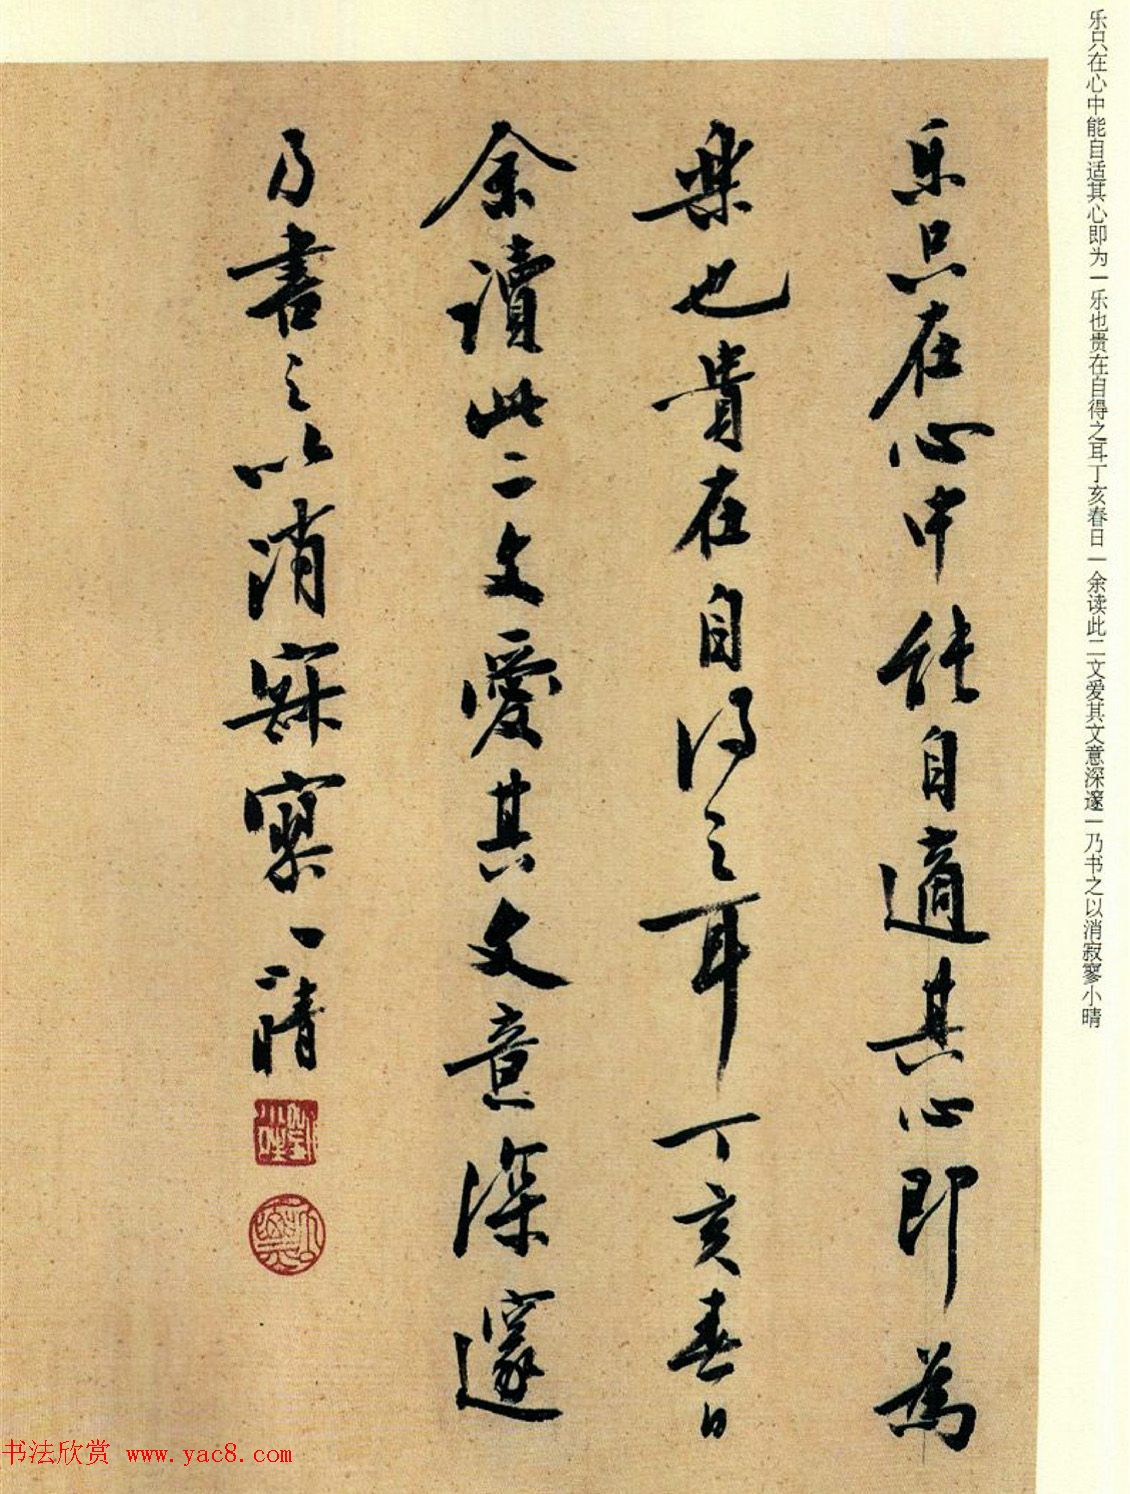 乐只在心中能自适其心即为一乐也贵在自得之耳丁亥春日一余读此二文爱其文意深邃一乃书之以消寂寥小晴
乐只在心中能自適其心即為
樂也貴在自得之耳丁亥春日
余讀此二文愛其文意深邃
乃書之以消寂寥小晴
书法欣赏 www.yac8.com